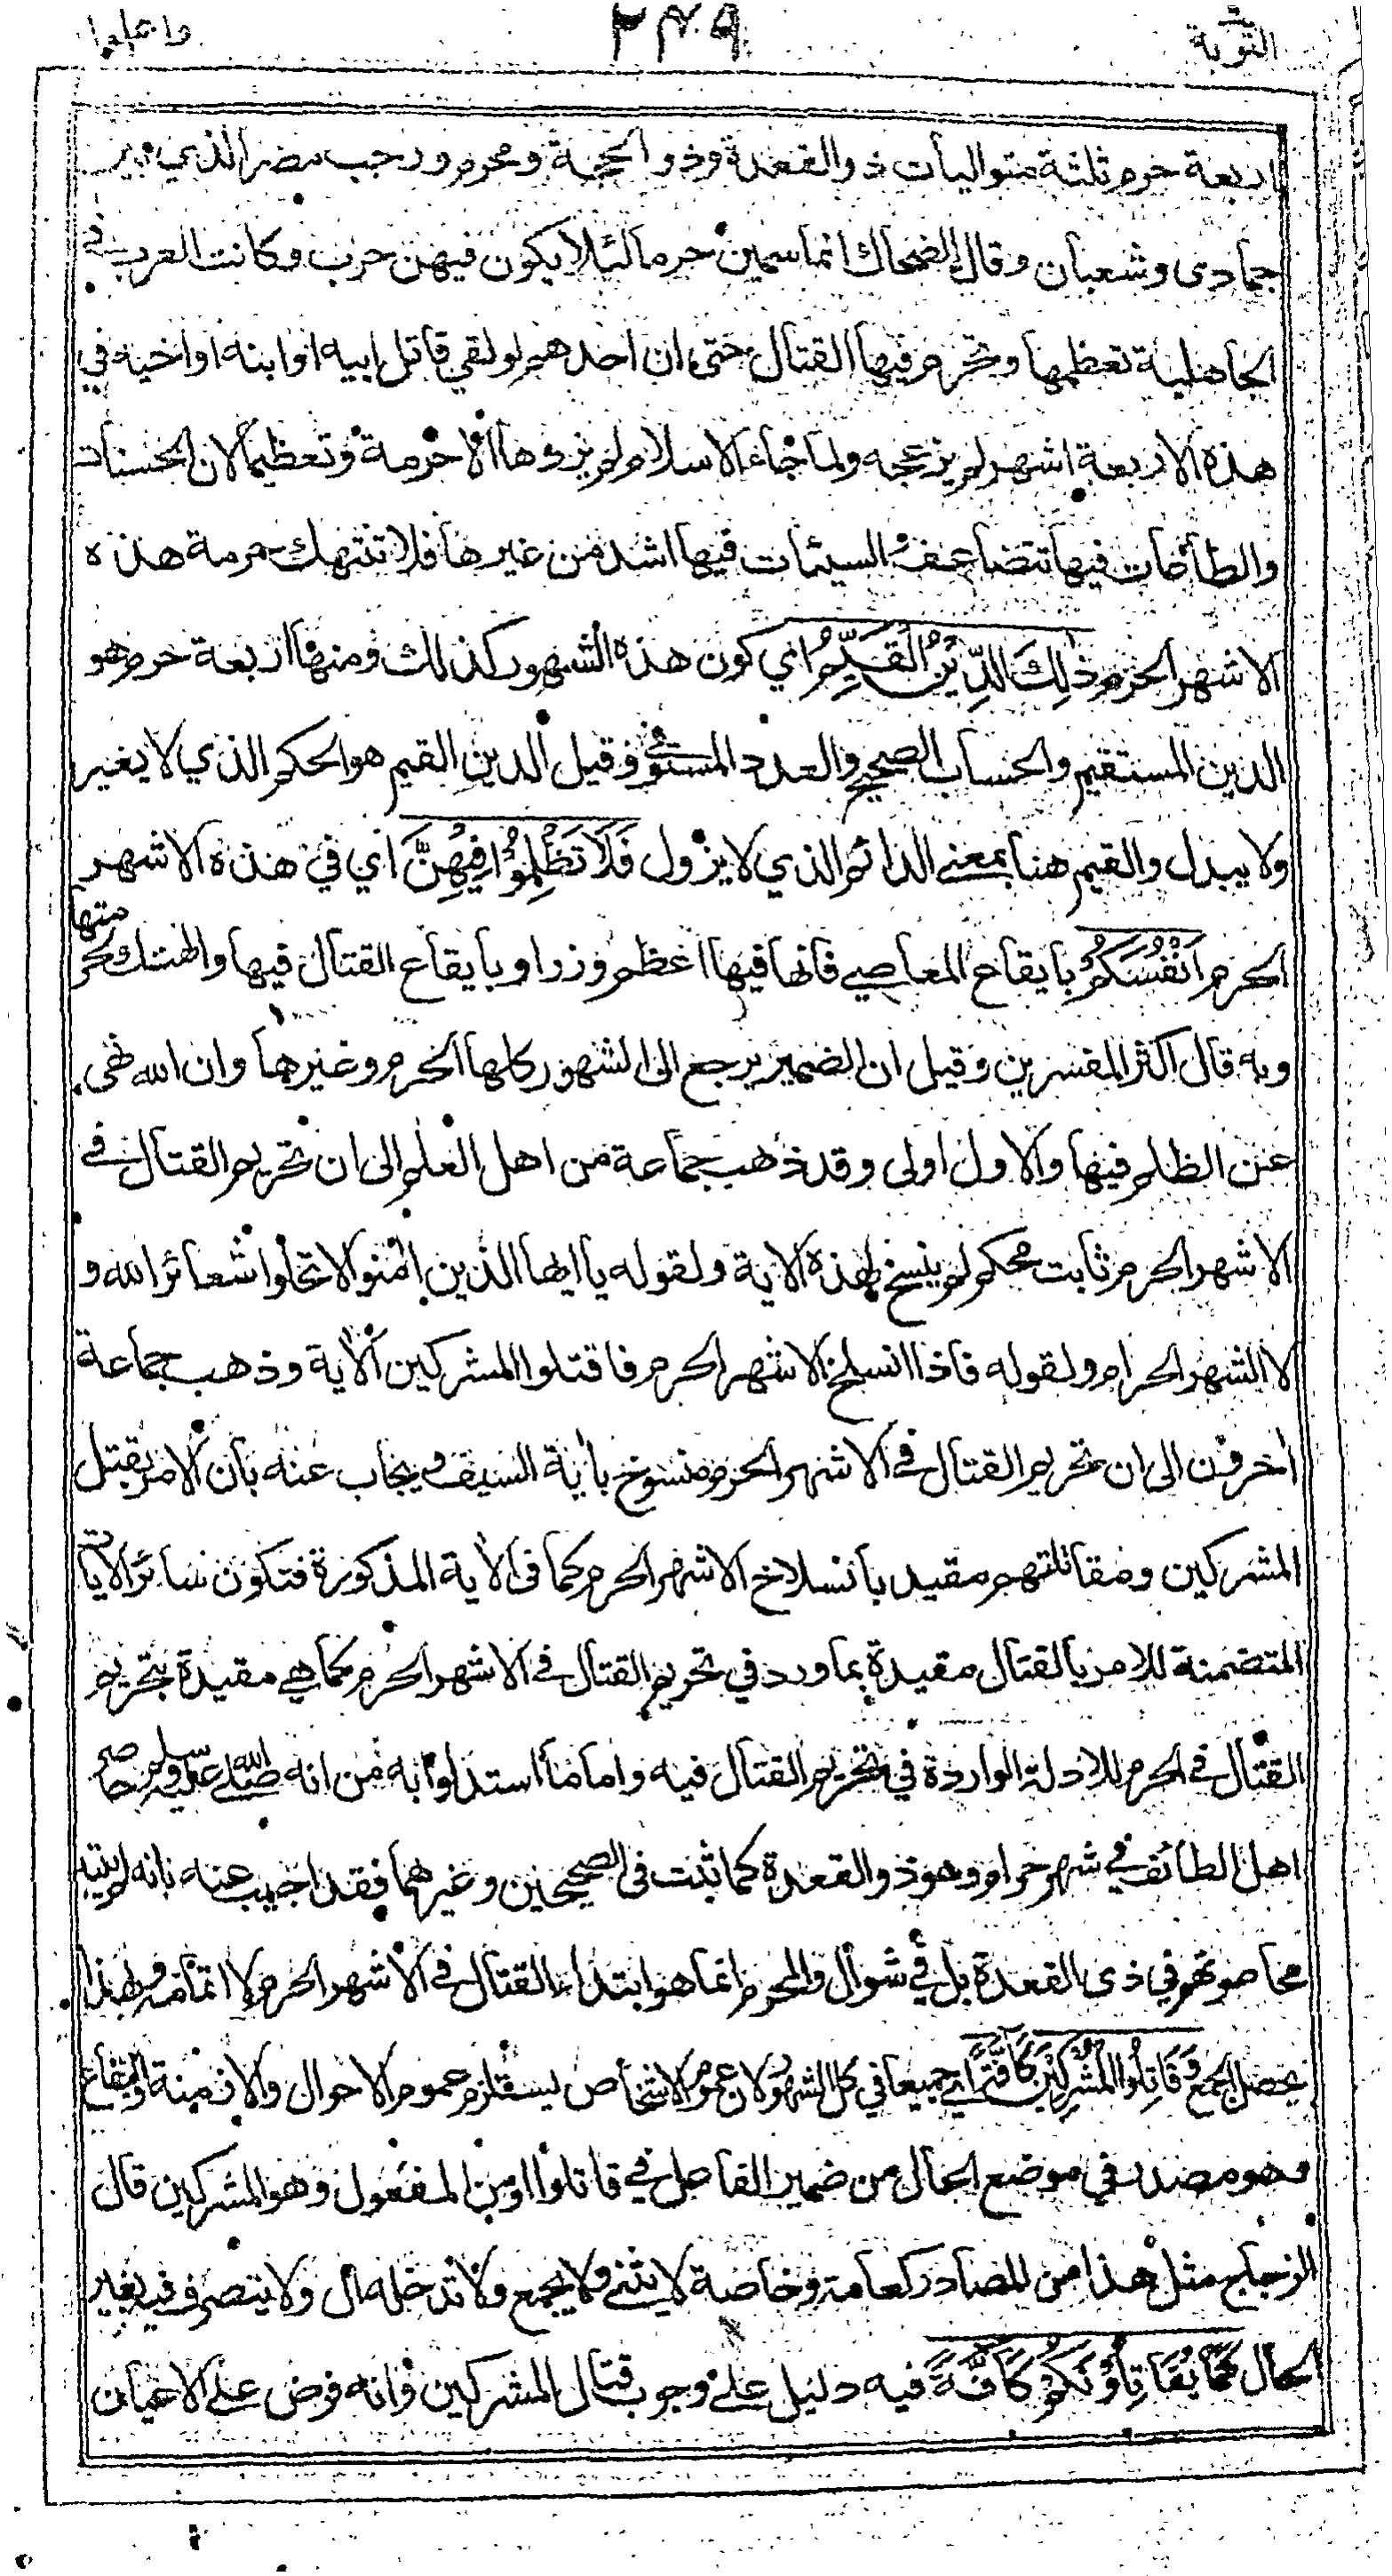 التوبة ٢٣٠٩ واعلموا
اربعة حرم ثلثة متواليات ذو القعدة وذو الحجة ومحرم ورجب مضر الذي بين
جمادى وشعبان وقال الضحاك انما سمين حرما لئلا يكون فيهن حرب وكانت العرب في
الجاهلية تعظمها وتحرم فيها القتال حتى ان احدهم لو لقي قاتل ابيه او ابنه او اخيه في
هذه الاربعة اشهر لم يزعجه ولما جاء الاسلام لم يزدها الا حرمة وتعظيما لان الحسنات
والطاعات فيها تتضاعف والسيئات فيها اشد من غيرها فلا تنتهك حرمة هذه
الاشهر الحرم ذٰلِكَ الدِّيْنُ الْقَيِّمُ اي كون هذه الشهور كذلك ومنها اربعة حرم هو
الدين المستقيم والحساب الصحيح والعدد المستوفى وقيل الدين القيم هو الحكم الذي لا يغير
ولا يبدل والقيم هنا بمعنى الدائم الذي لا يزول فَلَا تَظْلِمُوْا فِيْهِنَّ اي في هذه الاشهر
الحرم اَنْفُسَكُمْ بايقاع المعاصي فانها فيها اعظم وزرا وبايقاع القتال فيها والهتك لحرمتها
وبه قال اكثر المفسرين وقيل ان الضمير يرجع الى الشهور كلها الحرم وغيرها وان الله نهى
عن الظلم فيها والاول اولى وقد ذهب جماعة من اهل العلم الى ان تحريم القتال في
الاشهر الحرم ثابت محكم لم ينسخ لهذه الاية ولقوله يا ايها الذين اٰمنوا لا تحلوا شعائر الله و
لا الشهر الحرام ولقوله فاذا انسلخ الاشهر الحرم فاقتلوا المشركين الاٰية وذهب جماعة
اخرون الى ان تحريم القتال في الاشهر الحرم منسوخ باٰية السيف ويجاب عنه بان الامر بقتل
المشركين ومقاتلتهم مقيد بانسلاخ الاشهر الحرم كما في الاٰية المذكورة فتكون سائر الاٰيات
المتضمنة للامر بالقتال مقيدة بما ورد في تحريم القتال في الاشهر الحرم كما هي مقيدة بتحريم
القتال في الحرم للادلة الواردة في تحريم القتال فيه واما ما استدلوا به من انه صلى الله عليه وسلم حاصر
اهل الطائف في شهر حرام وهو ذو القعدة كما ثبت في الصحيحين وغيرهما فقد اجيب عنه بانه لم يبتد
محاصرتهم في ذى القعدة بل في شوال والمحرم انما هو ابتداء القتال في الاشهر الحرم لا اتمامه وبهذا
يحصل الجمع وَقَاتِلُوا الْمُشْرِكِيْنَ كَافَّةً اي جميعا في كل الشهور لان عموم الاشخاص يستلزم عموم الاحوال والازمنة والبقاع
وهو مصدر في موضع الحال من ضمير الفاعل في قاتلوا او من المفعول وهو المشركين قال
الزجاج مثل هذا من المصادر كعامة وخاصة لا يثنى ولا يجمع ولا تدخله ال ولا يتصرف فيه بغير
الحال كَمَا يُقَاتِلُوْنَكُمْ كَافَّةً فيه دليل على وجوب قتال المشركين وانه فرض على الاعيان